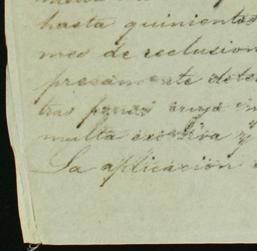 hasta quinientos
mes de reclusion
presamente dete
tras penas cuya in
multa excesiva y
La aplicacion